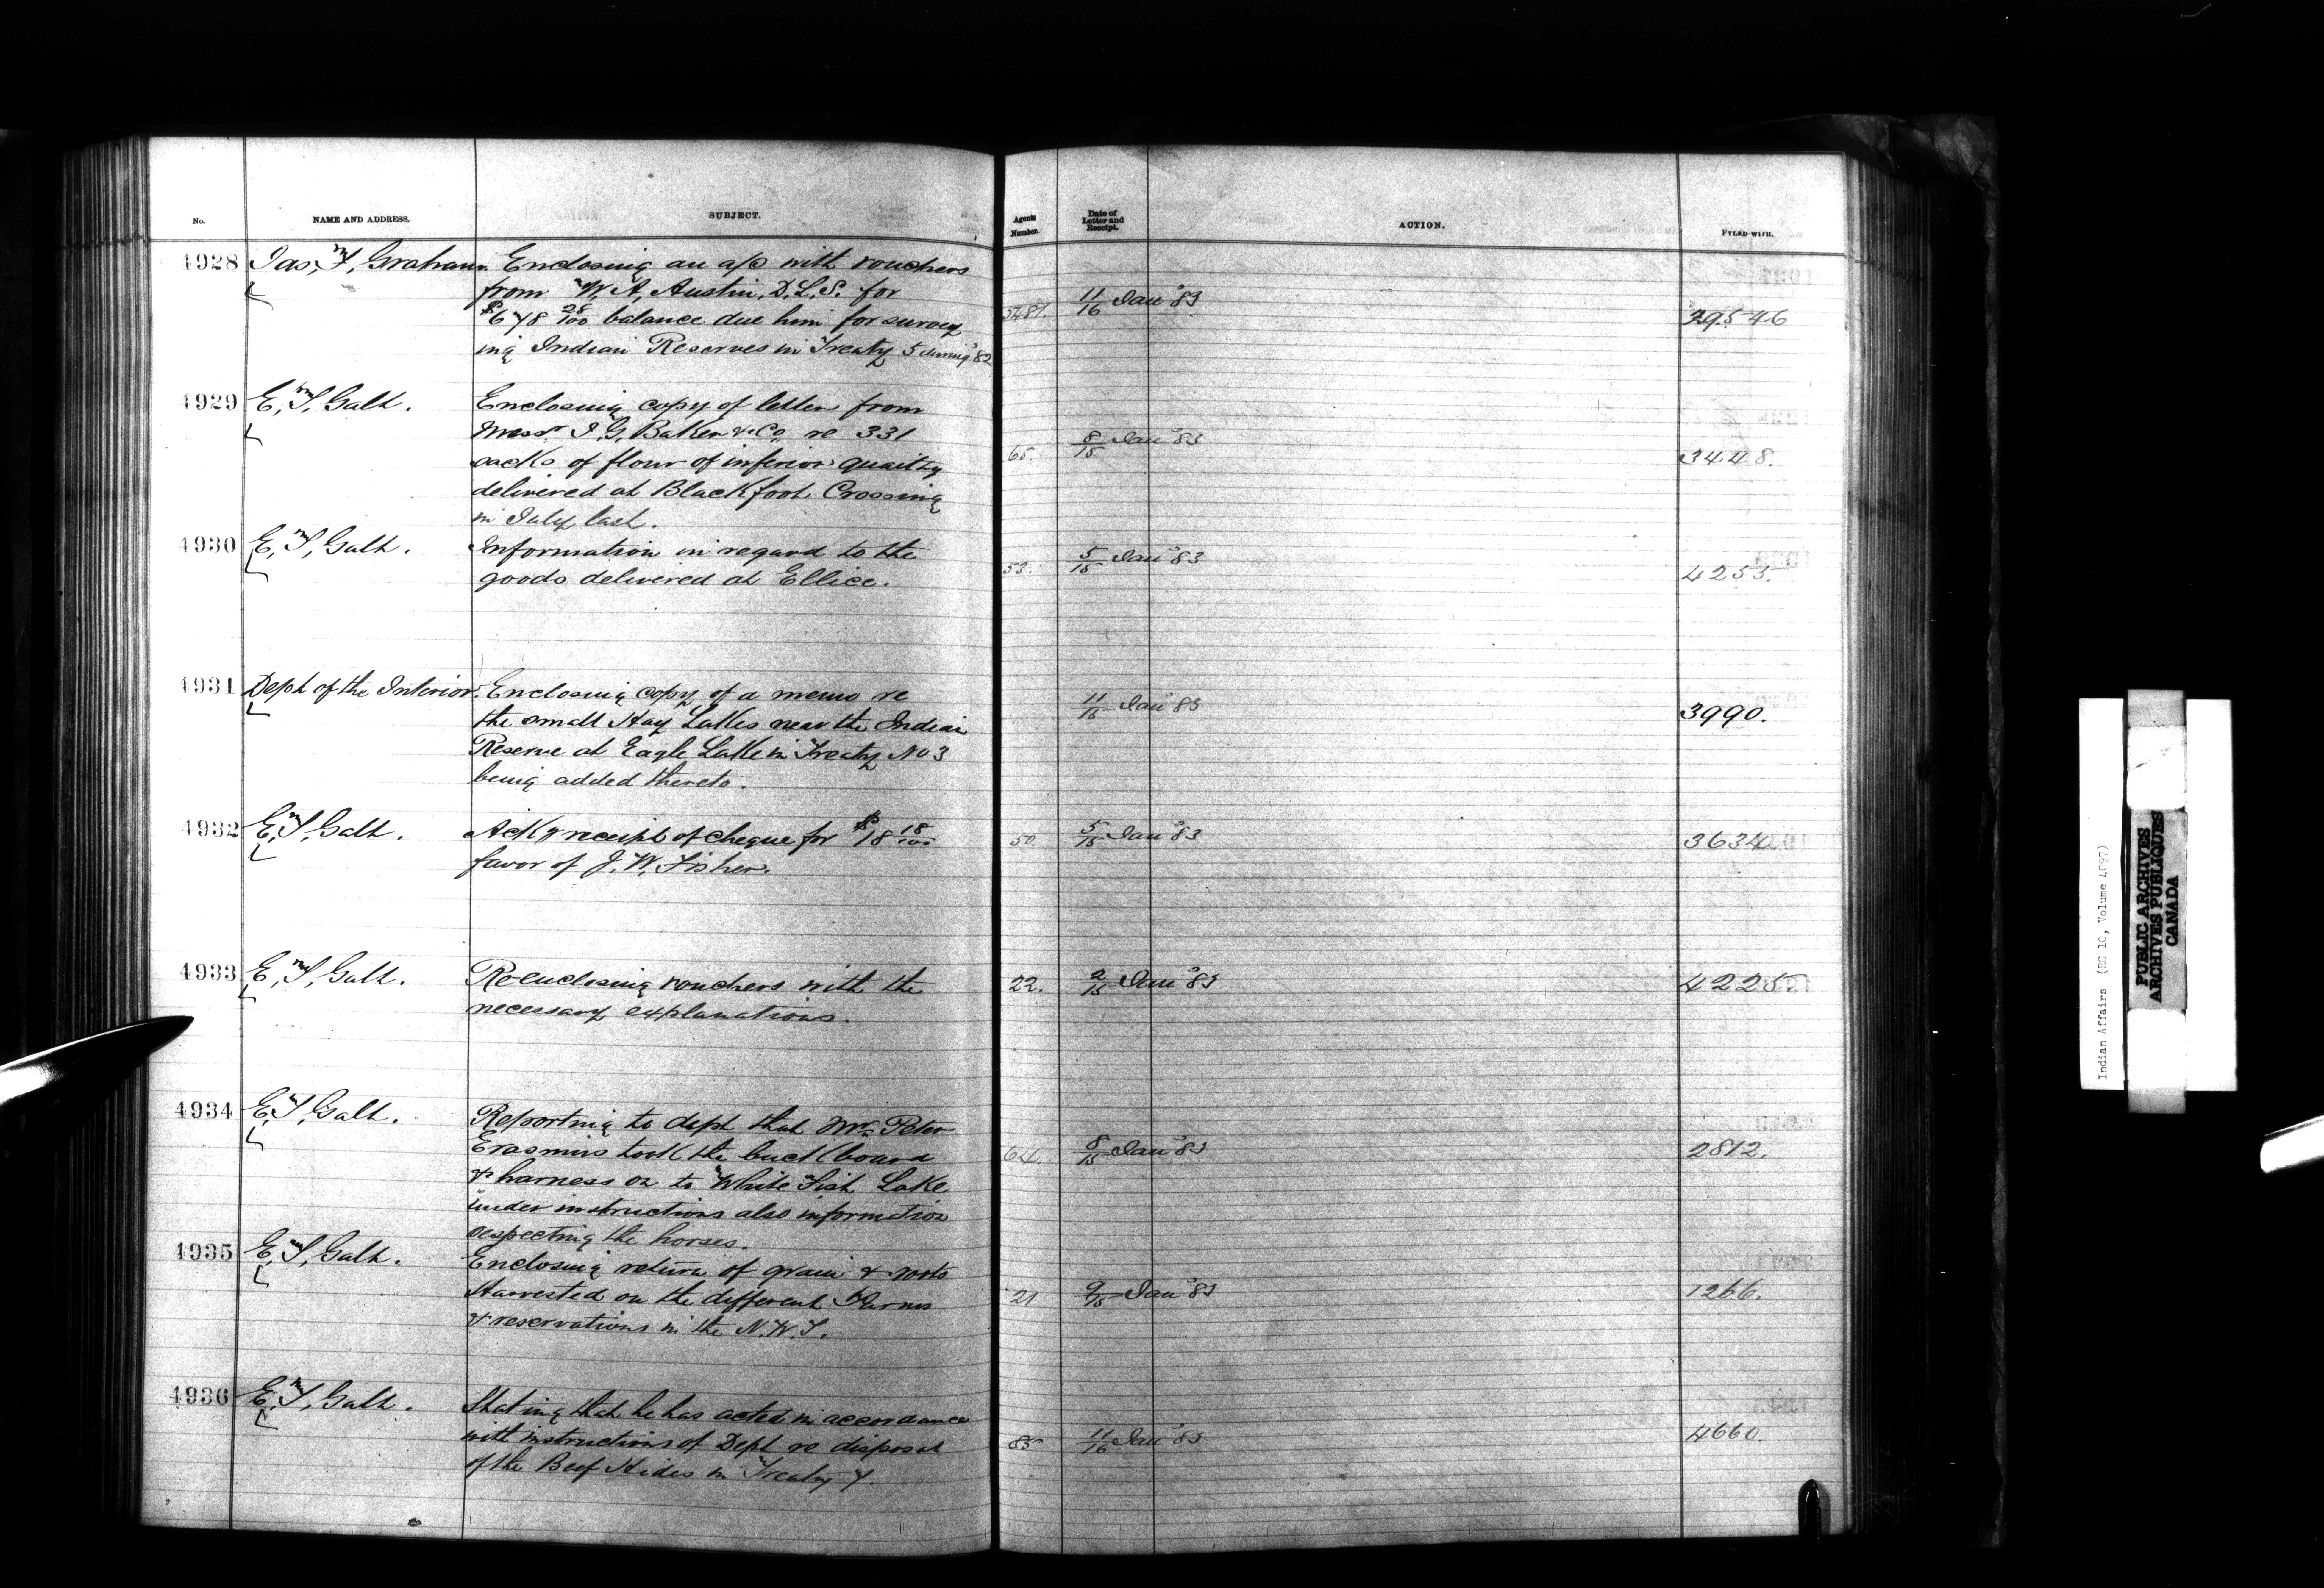 No. NAME AND ADDRESS. SUBJECT. Agents Number. Date of Letter and Receipt. ACTION. FYLED WITH.
4928 Jas. F. Graham. Enclosing an a/c with vouchers
from W. A. Austin, D.L.S. for
$678 25/100 balance due him for survey 11/16 Jan '83 29546
ing Indian Reserves in Treaty 5 during '82
4929 E. T. Galt. Enclosing copy of letter from
Messrs I. G. Baker & Co. re 331
sacks of flour of inferior quality 65. 8/15 Jan '83 3448.
delivered at Blackfoot Crossing
in July last.
4930 E. T. Galt. Information in regard to the
goods delivered at Ellice. 53. 5/15 Jan '83 4255.
4931 Dept of the Interior. Enclosing copy of a memo re
the small Hay Lakes near the Indian 11/15 Jan '83 3990.
Reserve at Eagle Lake in Treaty No 3
being added thereto.
4932 E. T. Galt. Ackg receipt of cheque for $18 18/100 50. 5/15 Jan '83 3634
favor of J. W. Fisher.
4933 E. T. Galt. Re-enclosing vouchers with the 22. 2/15 Jan '83 4225
necessary explanations.
4934 E. T. Galt. Reporting to dept that Mr. Peter
Erasmus took the buckboard 64. 8/15 Jan '83 2812.
& harness on to White Fish Lake
under instructions also information
respecting the horses.
4935 E. T. Galt. Enclosing return of grain & roots
Harvested on the different Farms 21 9/15 Jan '83 1266.
& reservations in the N.W.T.
4936 E. T. Galt. Stating that he has acted in accordance
with instructions of Dept re disposal 85 11/16 Jan '83 4660.
of the Beef Hides in Treaty 7.
Indian Affairs (RG 10, Volume 4097)
PUBLIC ARCHIVES
ARCHIVES PUBLIQUES
CANADA